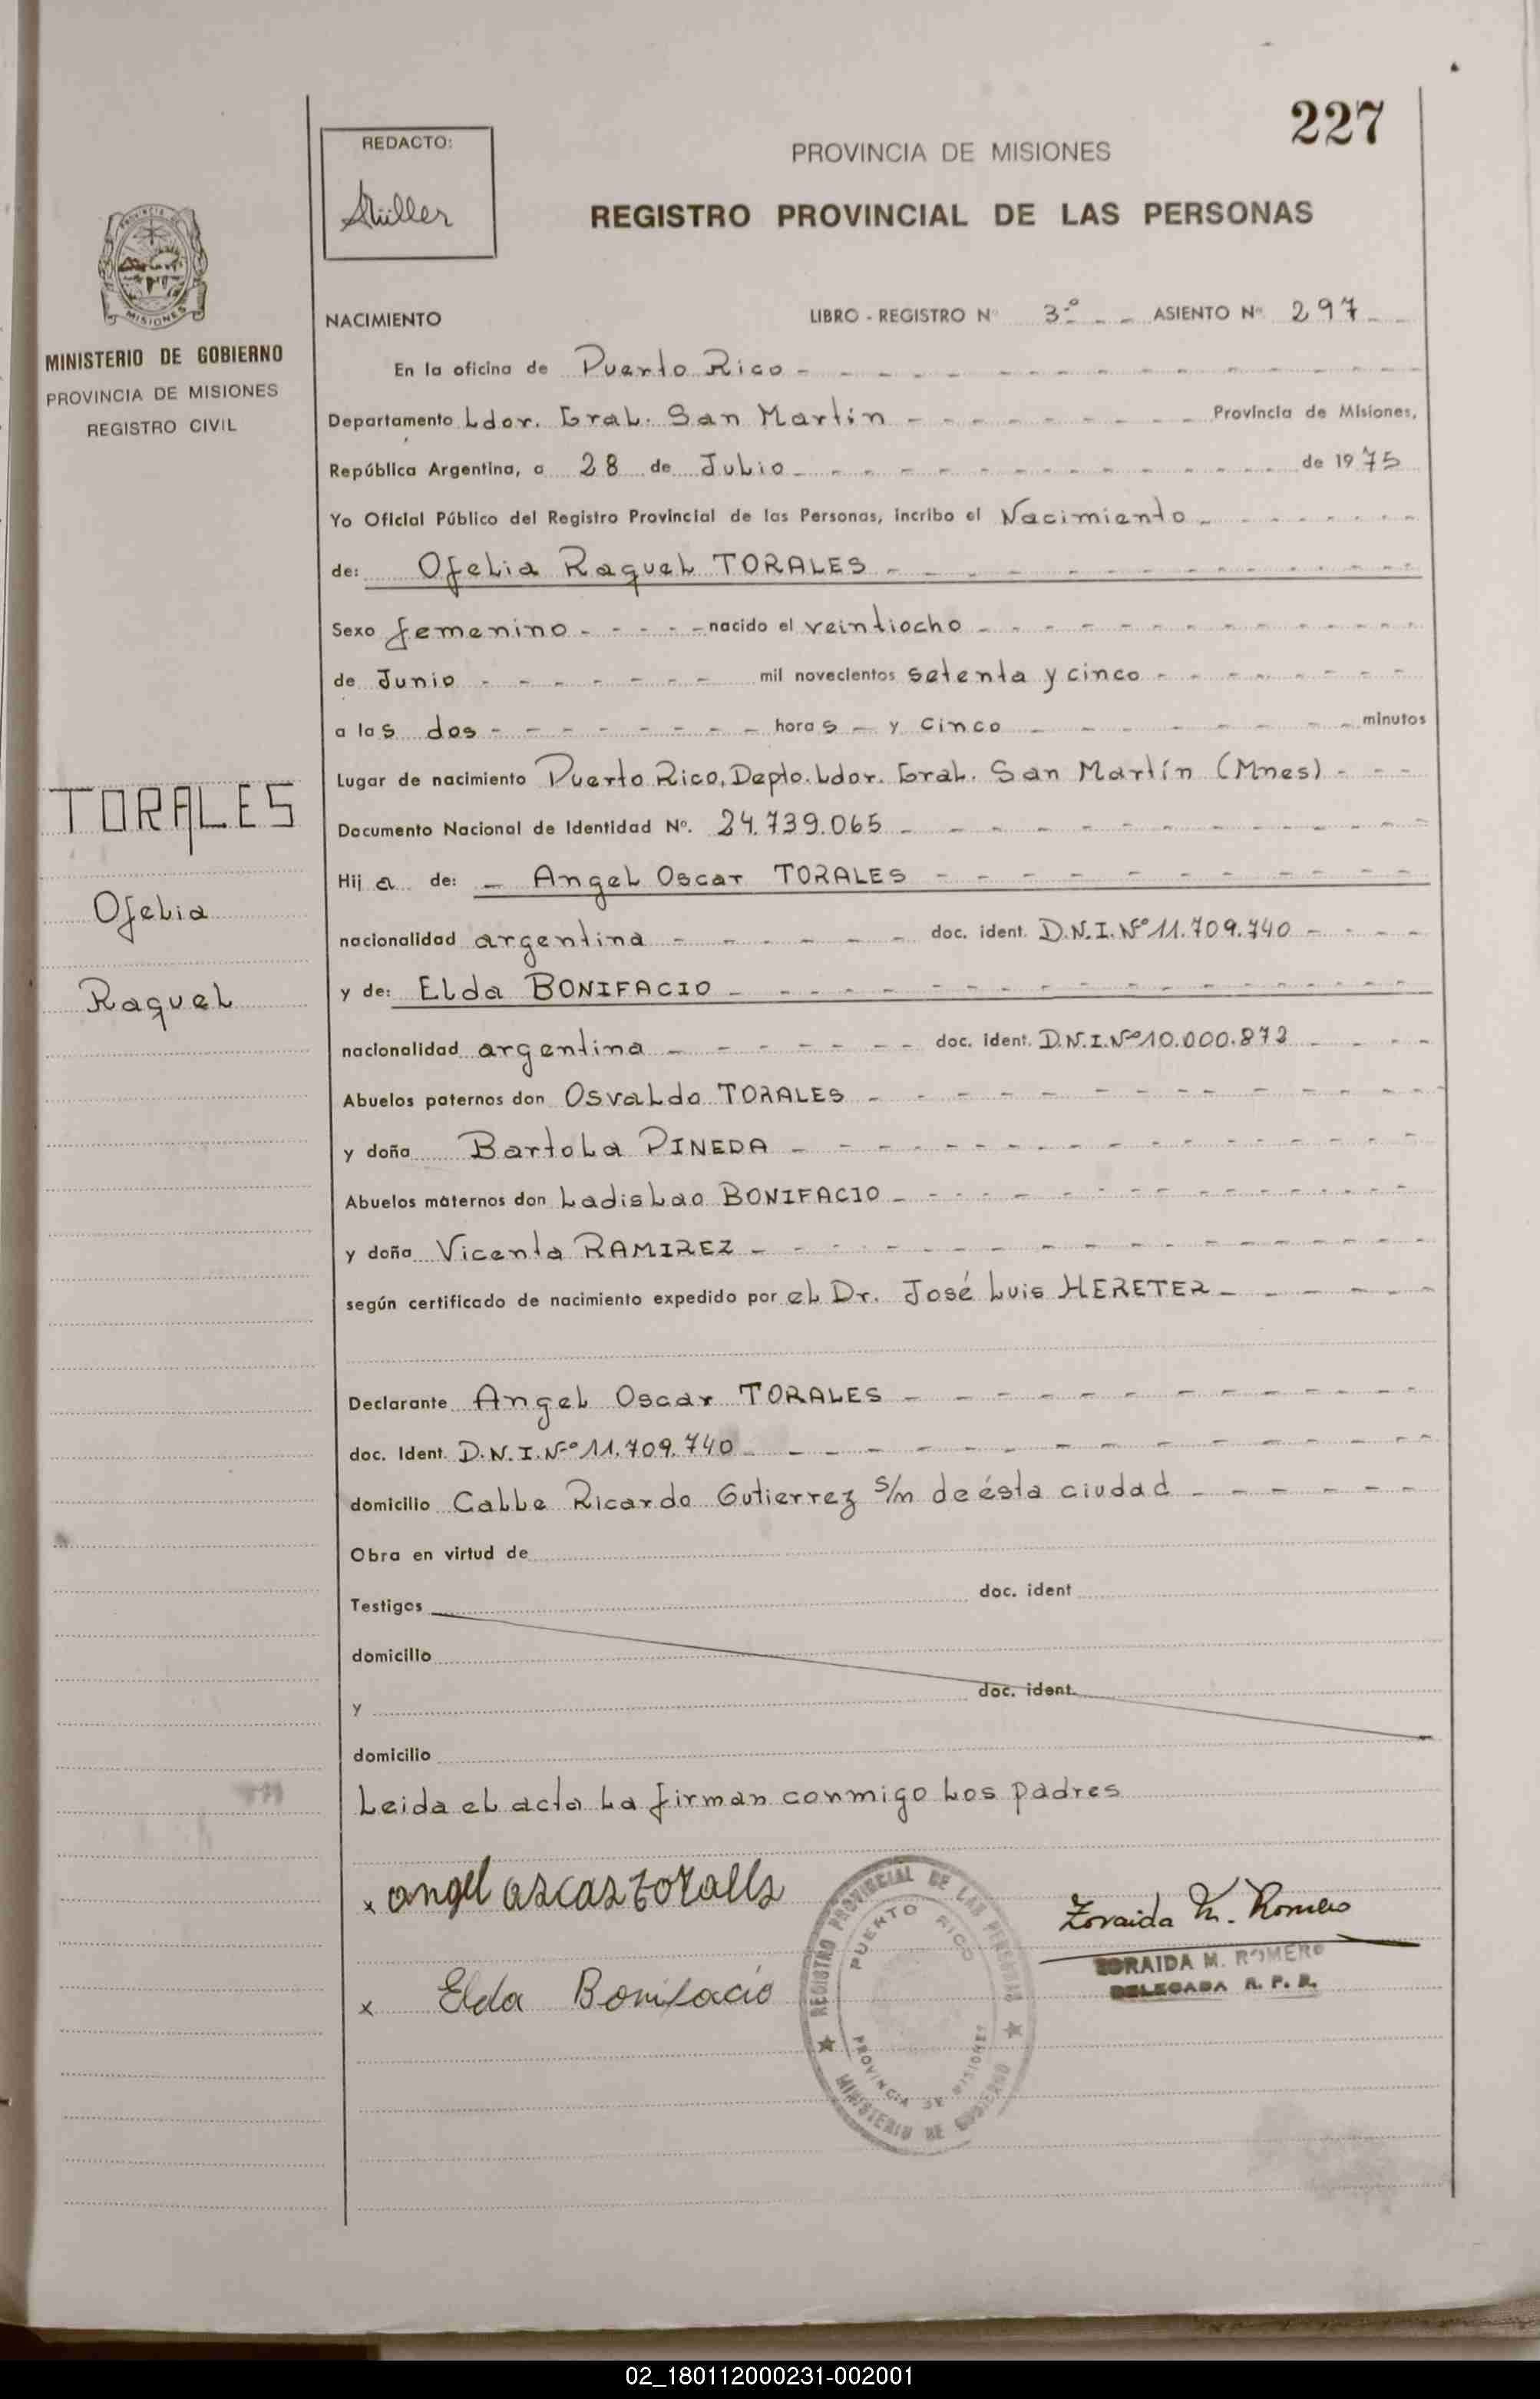 227
REDACTO:
Müller
PROVINCIA DE MISIONES
REGISTRO PROVINCIAL DE LAS PERSONAS
MISIONES
MINISTERIO DE GOBIERNO
PROVINCIA DE MISIONES
REGISTRO CIVIL
TORALES
Ofelia
Raquel
NACIMIENTO LIBRO - REGISTRO Nº 3º - - ASIENTO Nº 297 - -
En la oficina de Puerto Rico -
Departamento Ldor. Gral. San Martín - Provincia de Misiones,
República Argentina, a 28 de Julio - de 1975
Yo Oficial Público del Registro Provincial de las Personas, incribo el Nacimiento -
de: Ofelia Raquel TORALES -
Sexo femenino - - - - nacido el veintiocho -
de Junio - mil novecientos setenta y cinco -
a las dos - horas - y cinco - minutos
Lugar de nacimiento Puerto Rico, Depto. Ldor. Gral. San Martín (Mnes) - - -
Documento Nacional de Identidad Nº. 24.739.065 -
Hija de: - Angel Oscar TORALES -
nacionalidad argentina - doc. ident. D.N.I.Nº 11.709.740 - - - -
y de: Elda BONIFACIO -
nacionalidad argentina - doc. ident. D.N.I.Nº 10.000.873 - - - -
Abuelos paternos don Osvaldo TORALES -
y doña Bartola PINEDA -
Abuelos maternos don Ladislao BONIFACIO -
y doña Vicenta RAMIREZ -
según certificado de nacimiento expedido por el Dr. José Luis HERETER -
Declarante Angel Oscar TORALES -
doc. Ident. D.N.I.Nº 11.709.740 -
domicilio Calle Ricardo Gutierrez s/n de ésta ciudad -
Obra en virtud de
Testigos doc. ident
domicilio
y doc. ident.
domicilio
Leida el acta la firman conmigo los padres
x angel oscar toralls
x Elda Bonifacio
REGISTRO PROVINCIAL DE LAS PERSONAS
PUERTO RICO
PROVINCIA DE MISIONES
MINISTERIO DE GOBIERNO
Zoraida M. Romero
ZORAIDA M. ROMERO
DELEGADA R. P. P.
02_180112000231-002001